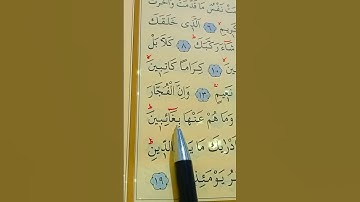 ـَتْ نَفْسٌ مَا قَدَّمَتْ وَاَخَّرَتْ
ـكَرِيمِ ٦ اَلَّذِى خَلَقَكَ
شَاءَ رَكَّبَكَ ٨ كَلَّا بَلْ
ـينَ ١٠ كِرَامًا كَاتِبِينَ
نَعِيمٍ ١٣ وَاِنَّ الْفُجَّارَ
وَمَا هُمْ عَنْهَا بِغَائِبِينَ
اَدْرٰيكَ مَا يَـ الدِّينِ
ـرُ يَوْمَئِذٍ
١٩